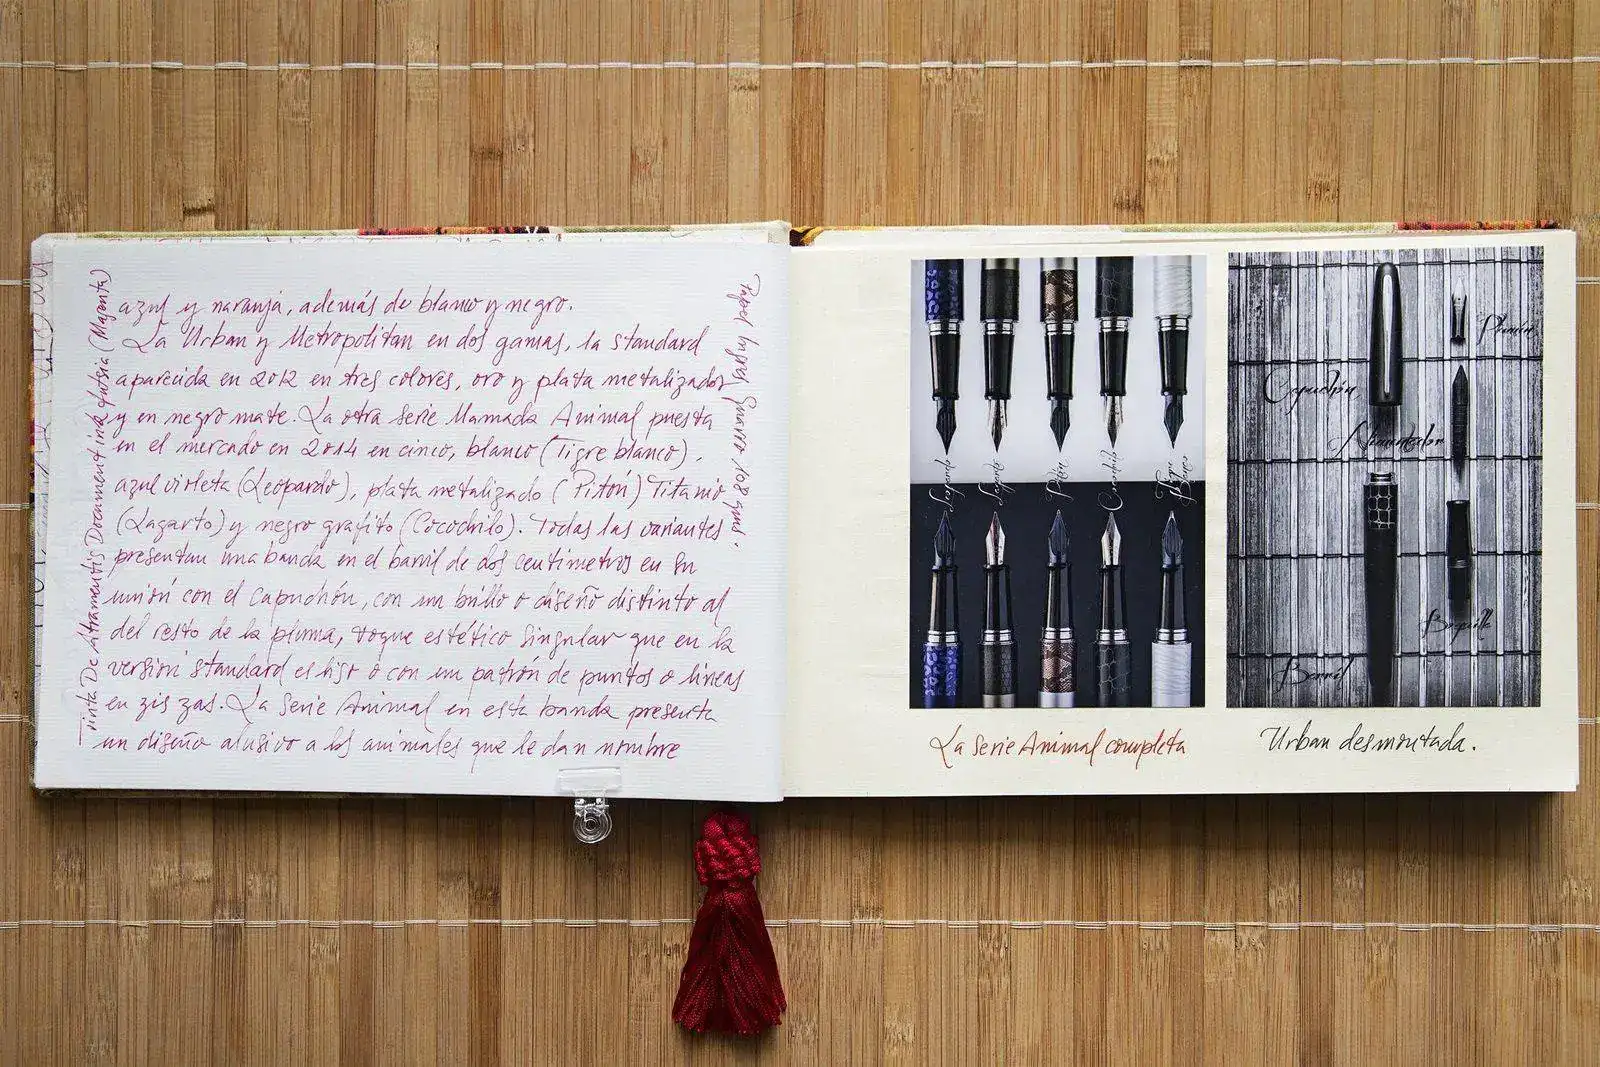 azul y naranja, además de blanco y negro.
La Urban y Metropolitan en dos gamas, la standard
aparecida en 2012 en tres colores, oro y plata metalizados
y en negro mate. La otra serie llamada Animal puesta
en el mercado en 2014 en cinco, blanco (Tigre blanco),
azul violeta (Leopardo), plata metalizado (Pitón) Titanio
(Lagarto) y negro grafito (Cocodrilo). Todas las variantes
presentan una banda en el barril de dos centímetros en su
unión con el capuchón, con un brillo o diseño distinto al
del resto de la pluma, toque estético singular que en la
versión standard es liso o con un patrón de puntos o líneas
en zis zas. La Serie Animal en esta banda presenta
un diseño alusivo a los animales que le dan nombre
Tinta De Atramentis Document ink fuksia (Magenta)
Papel Ingres Guarro 108 gms.
Leopardo
Lagarto
Pitón
Cocodrilo
Tigre
La Serie Animal completa
Plumín
Capuchón
Alimentador
Boquilla
Barril
Urban desmontada.